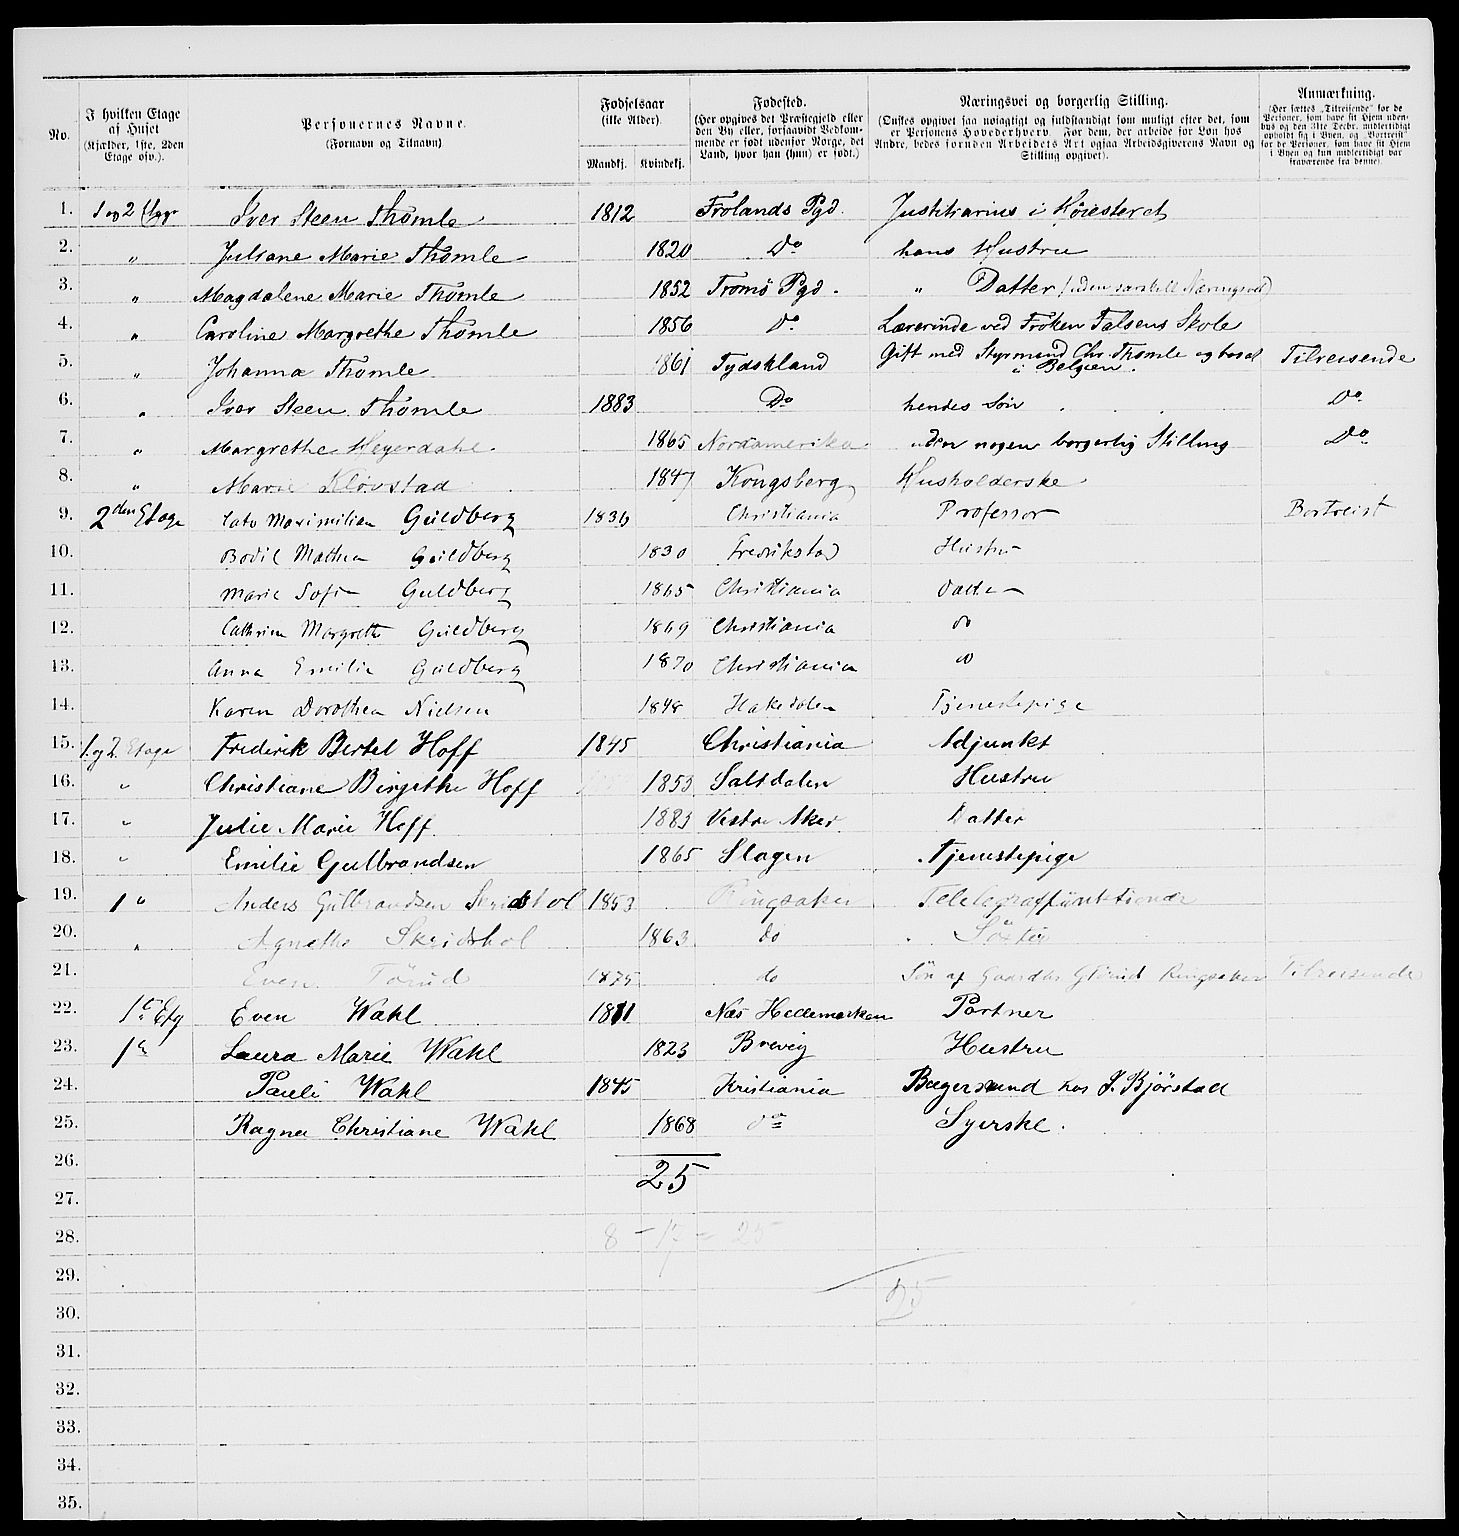 No. | I hvilken Etage af Huset (Kjælder, 1ste, 2den Etage osv.). | Personernes Navne. (Fornavn og Tilnavn) | Fødselsaar (ikke Alder). Mandkj. | Kvindekj. | Fødested. (Her opgives det Præstegjeld eller den By eller, forsaavidt Vedkommende er født udenfor Norge, det Land, hvor han (hun) er født.) | Næringsvei og borgerlig Stilling. (Ønskes opgivet saa nøiagtigt og fuldstændigt som muligt efter det, som er Personens Hovederhverv. For dem, der arbeide for Løn hos Andre, bedes foruden Arbeidets Art ogsaa Arbeidsgiverens Navn og Stilling opgivet). | Anmærkning. (Her sættes „Tilreisende" for de Personer, som have sit Hjem udenbys og den 31te Decbr. midlertidigt opholdt sig i Byen, og „Bortreist" for de Personer, som have sit Hjem i Byen og kun midlertidigt var fraværende fra denne)
1. 1 og 2 Etage Iver Steen Thomle 1812 Frolands Pgd. Justitiarius i Høiesteret
2. " Juliane Marie Thomle 1820 Do hans Hustru
3. " Magdalene Marie Thomle 1852 Tromø Pgd. " Datter (uden særskilt Næringsvei)
4. " Caroline Margrethe Thomle 1856 Do Lærerinde ved Frøken Falsens Skole
5. " Johanna Thomle. 1861 Tydskland Gift med Styrmand Chr. Thomle og bosat i Belgien. Tilreisende
6. " Iver Steen Thomle 1883 Do hendes Søn Do
7. " Margrethe Heyerdahl. 1865 Nordamerika uden nogen borgerlig Stilling Do
8. " Marie Kløvstad 1847 Kongsberg Husholderske
9. 2den Etage Cato Maximilian Guldberg 1836 Christiania Professor Bortreist
10. Bodil Mathea Guldberg 1830 Fredrikstad Hustru
11. Marie Sofie Guldberg 1865 Christiania Datter
12. Cathrine Margrethe Guldberg 1869 Christiania do
13. Anna Emilie Guldberg 1870 Christiania do
14. Karen Dorothea Nielsen 1848 Hakedalen Tjenestepige
15. 1. og 2. Etage Frederik Bertel Hoff 1845 Christiania Adjunkt
16. " Christiane Birgithe Hoff 1853 Saltdalen Hustru
17. " Julie Marie Hoff. 1883 Vestre Aker Datter
18. " Emilie Gulbrandsen 1865 Slagen Tjenestepige
19. 1 " Anders Gulbrandsen Skridshol 1853 Ringsaker Telegraffunktionær
20. " Agnethe Skridshol 1863 do Søster
21. Even Torud 1875 do Søn af Gaardbr Ringsaker Tilreisende
22. 1ste Etg Even Wahl 1811 Næs Hedemarken Portner
23. 1 " Laura Marie Wahl 1823 Brevig Hustru
24. Pauli Wahl 1845 Kristiania Bagersvend hos J. Bjørstad
25. Ragna Christiane Wahl 1868 do Syerske.
26. 25
27.
28. 8 – 17 = 25
29.
30. 25
31.
32.
33.
34.
35.